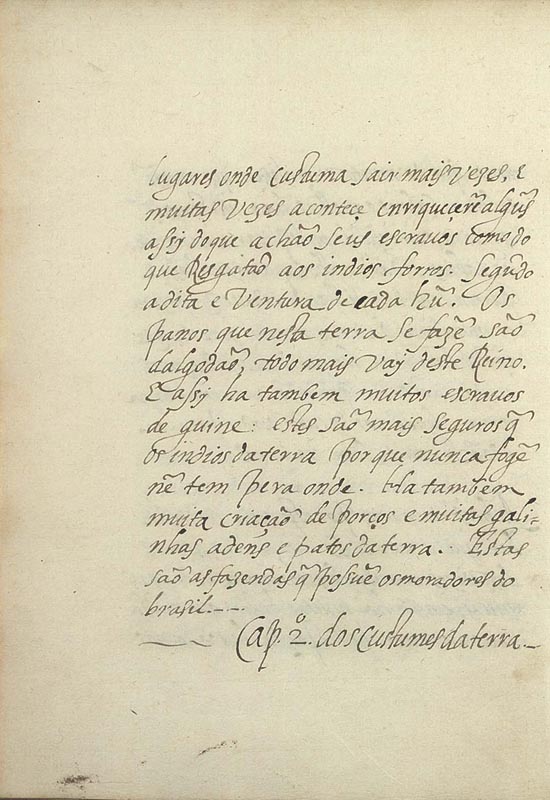 lugares onde custuma sair mais vezes. E
muitas vezes acontece enriqueçerẽ algũs
assy do que achão seus escravos como do
que Resgatão aos indios forros. Segũdo
a dita e Ventura de cada hũ. Os
panos que nesta terra se fazẽ são
dalgodão, todo mais vay deste Reino.
E assy ha tambem muitos escravos
de guine: estes são mais seguros q̃
os indios da terra porque nunca fogẽ
nẽ tem pera onde. Ha tambem
muita criação de porcos e muitas gali=
nhas adens e patos da terra. Estas
são as fazendas q̃ possuẽ os moradores do
brasil.--
Cap. 2º. dos custumes da terra.